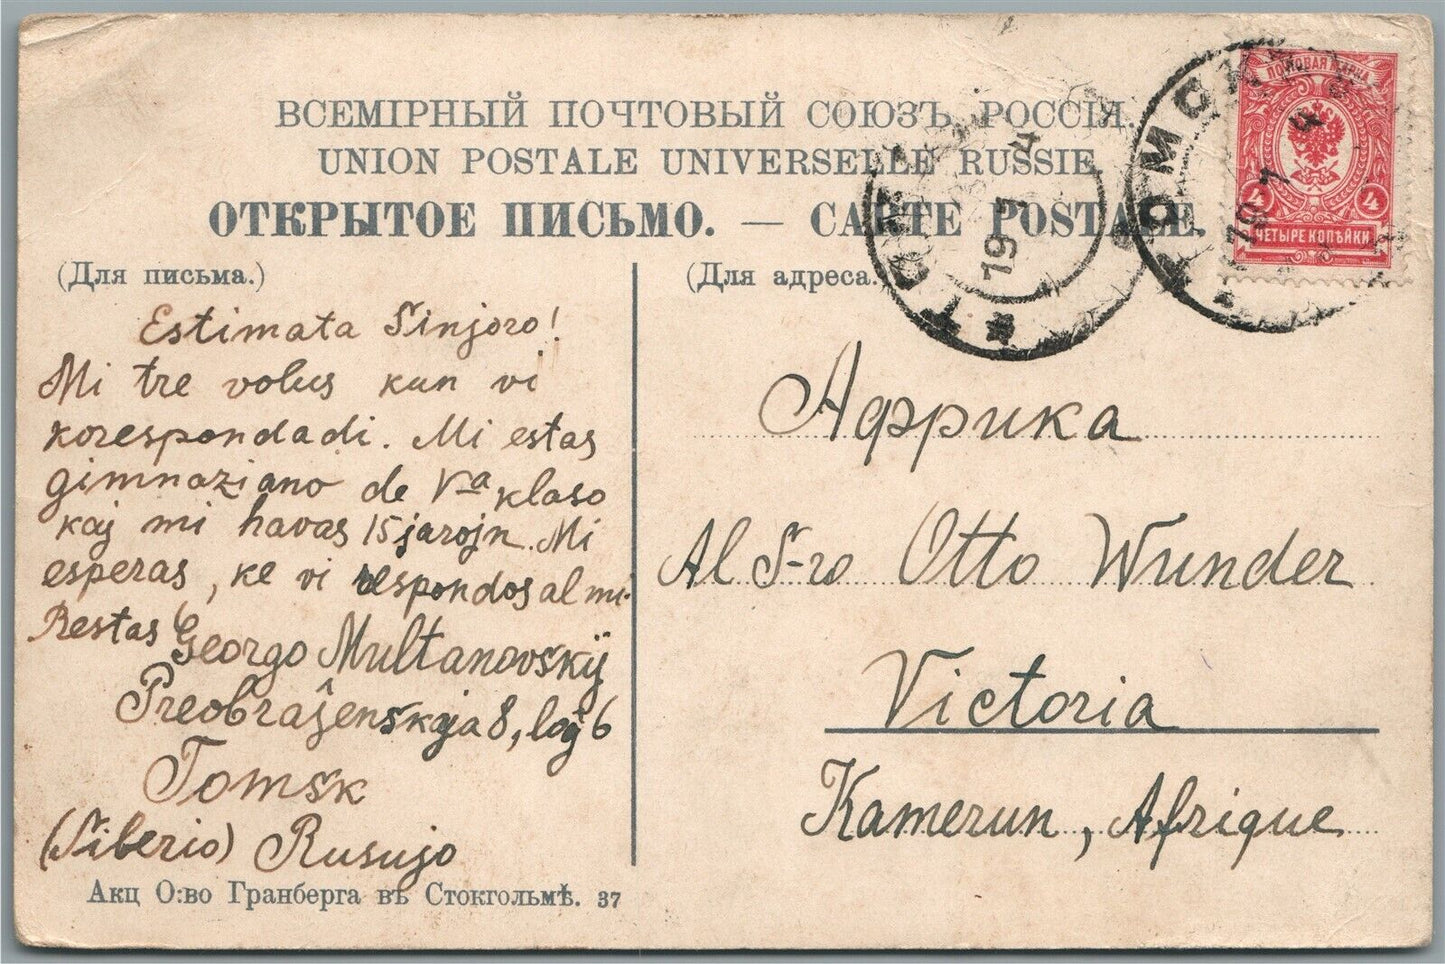 ВСЕМІРНЫЙ ПОЧТОВЫЙ СОЮЗЪ. РОССІЯ.
UNION POSTALE UNIVERSELLE RUSSIE.
ОТКРЫТОЕ ПИСЬМО. — CARTE POSTALE.
(Для письма.)
Estimata Sinjoro!
Mi tre volus kun vi
korespondadi. Mi estas
gimnaziano de V-a klaso
kaj mi havas 15 jarojn. Mi
esperas, ke vi respondos al mi.
Restas Georgo Multanovskij
Preobraĵenskaja 8, loĝ 6
Tomsk
(Siberio) Rusujo
Акц О:во Гранберга въ Стокгольмѣ. 37
(Для адреса.)
Африка
Al S-ro Otto Wunder
Victoria
Kamerun, Afrique
ПОЧТОВАЯ МАРКА
4 4
ЧЕТЫРЕ КОПѢЙКИ
ТОМСК
19 7 4